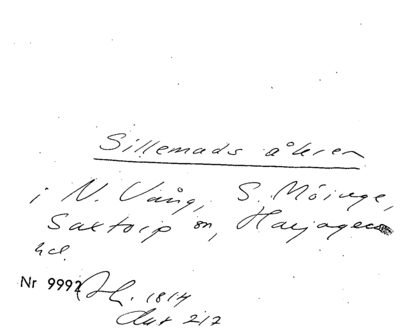 Sillemads åkren
i N. Vång, S. Möinge,
Saxtorp sn, Harjagers
hd.
Nr 9992 Sk. 1814
Akt 212